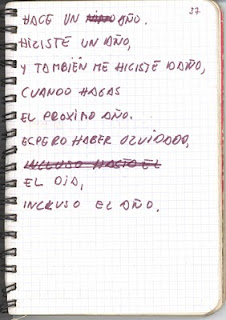 37
HACE UN AÑO.
HICISTE UN AÑO,
Y TAMBIÉN ME HICISTE DAÑO,
CUANDO HAGAS
EL PROXIMO AÑO.
ESPERO HABER OLVIDADO,
INCLUSO HASTA EL
EL DIA,
INCLUSO EL AÑO.